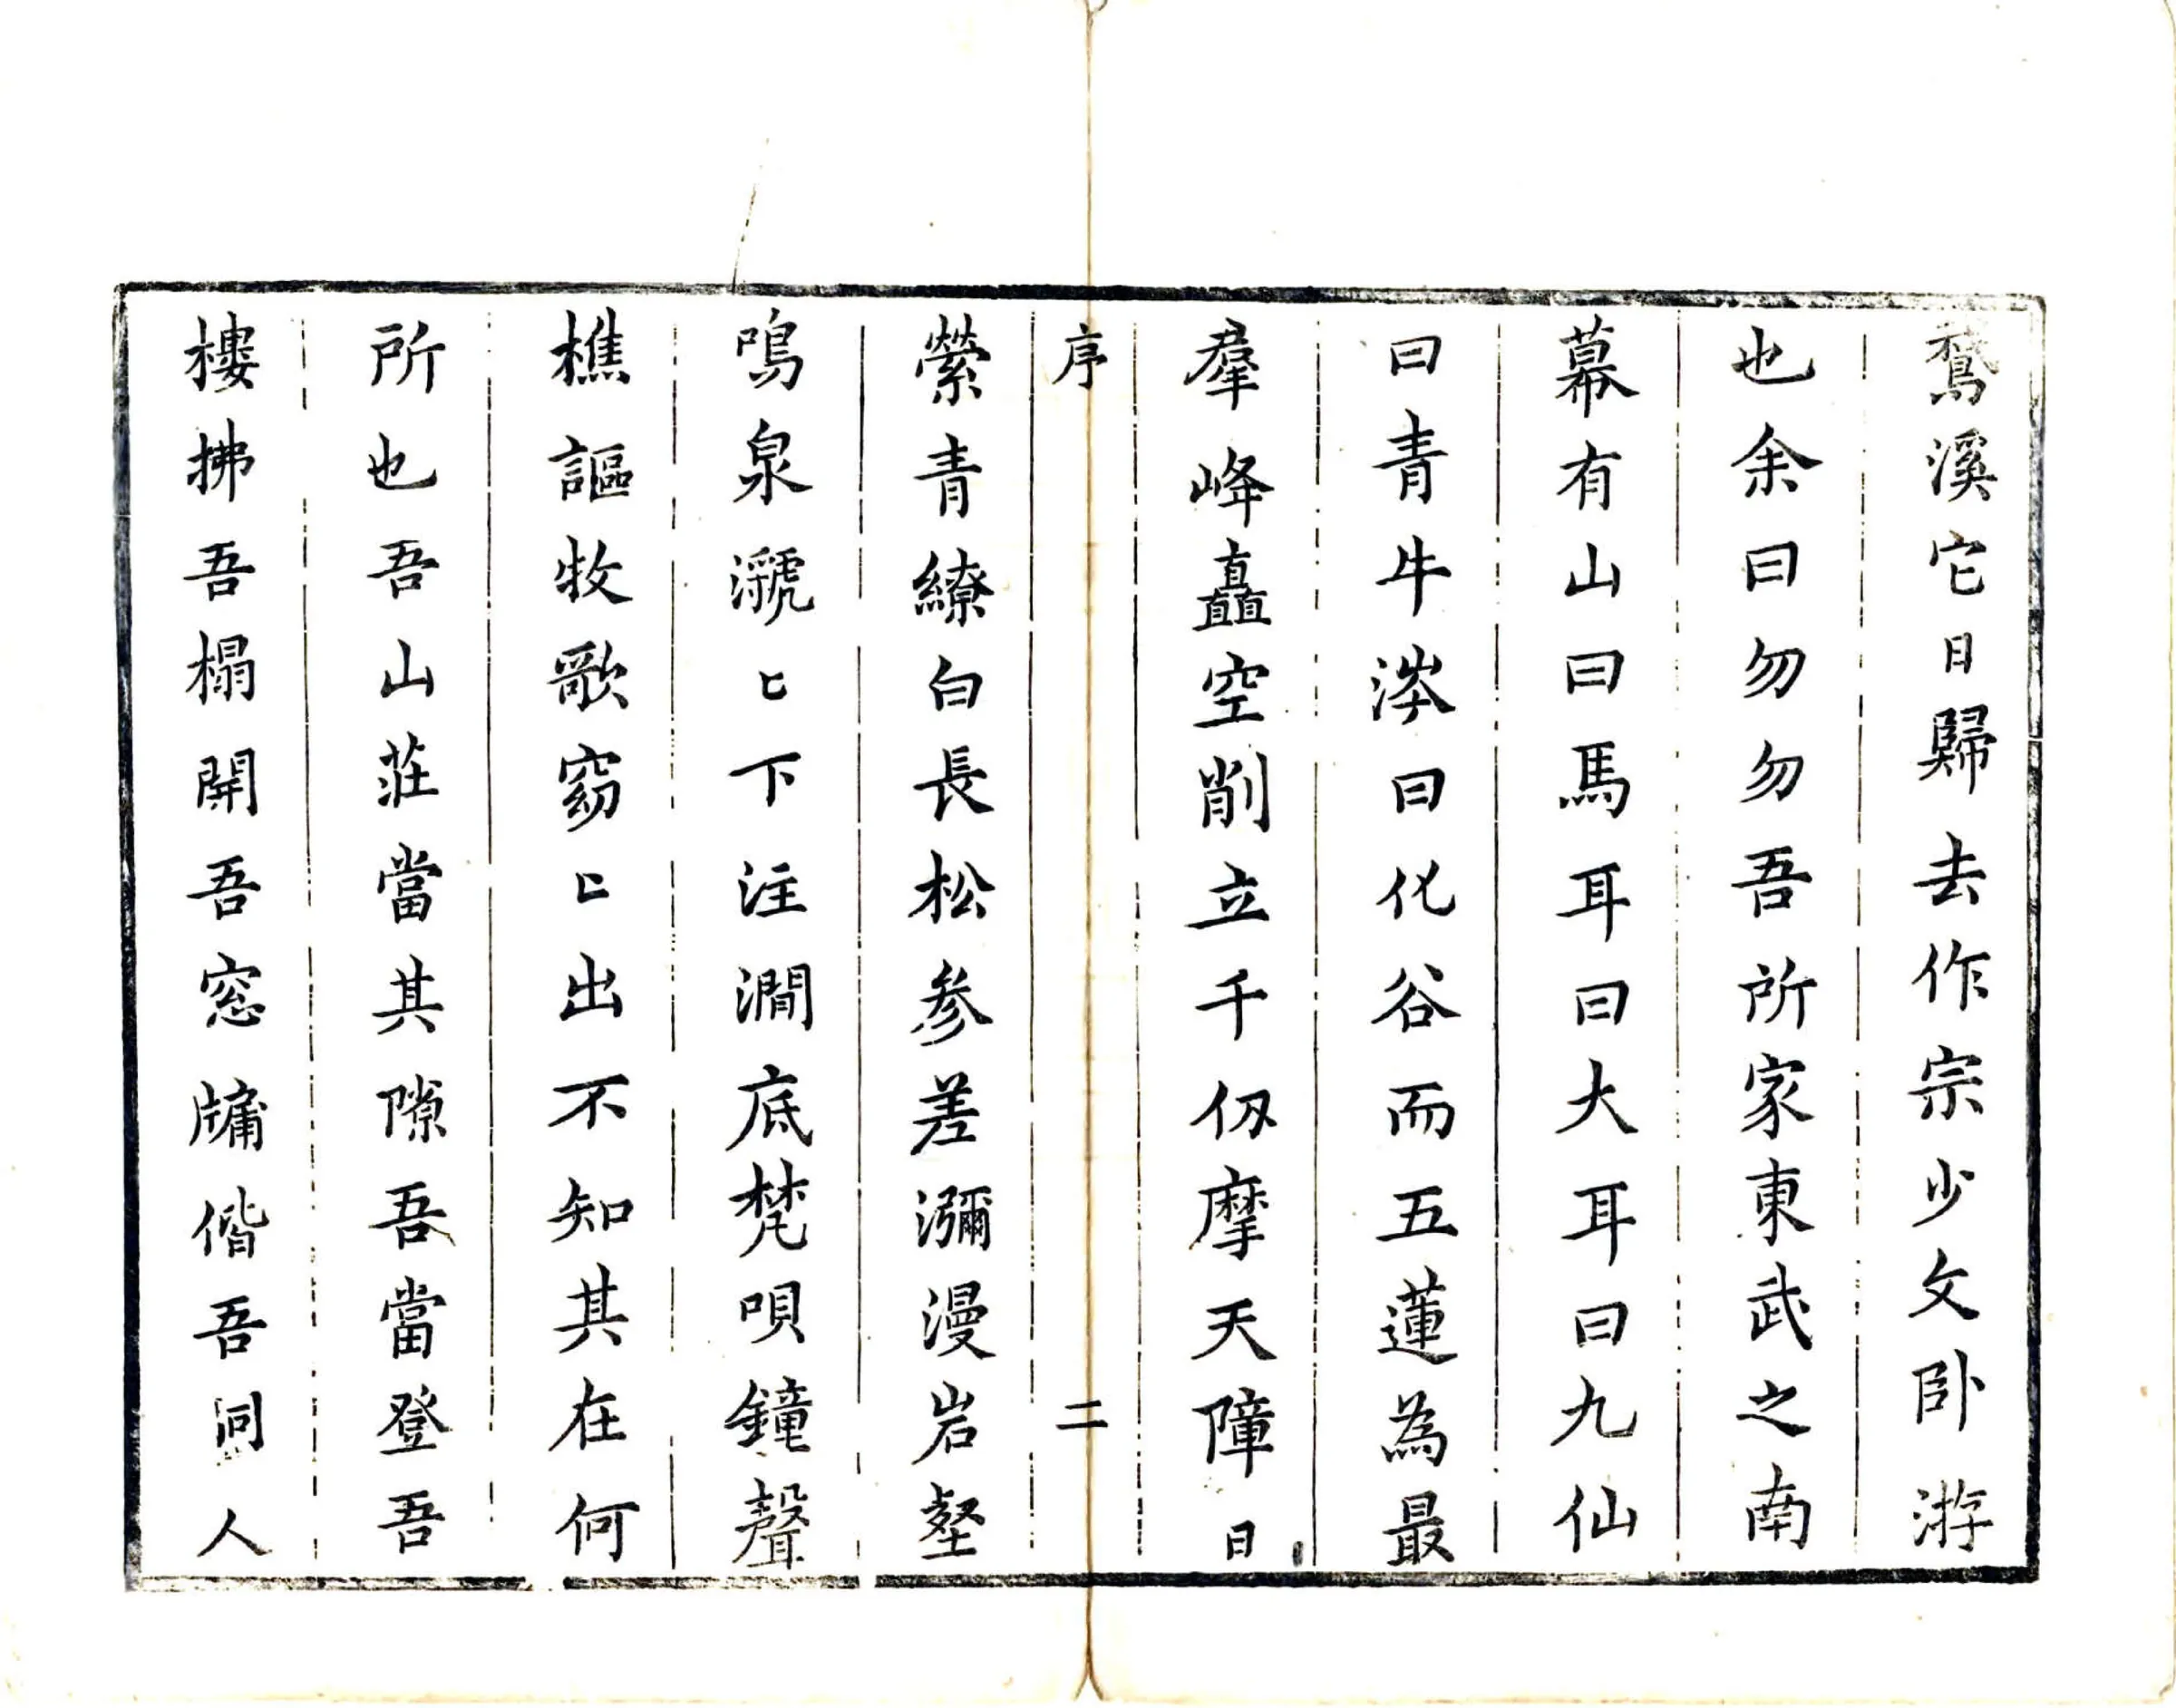 鵞溪它日歸去作宗少文卧游
也余曰勿勿吾所家東武之南
幕有山曰馬耳曰大耳曰九仙
曰青牛涔曰化谷而五蓮為最
羣峰矗空削立千仭摩天障日
序 二
縈青繚白長松參差瀰漫岩壑
鳴泉㶁〻下注澗底梵唄鐘聲
樵謳牧歌窈〻出不知其在何
所也吾山莊當其隙吾當登吾
樓拂吾榻開吾窓牗偕吾同人